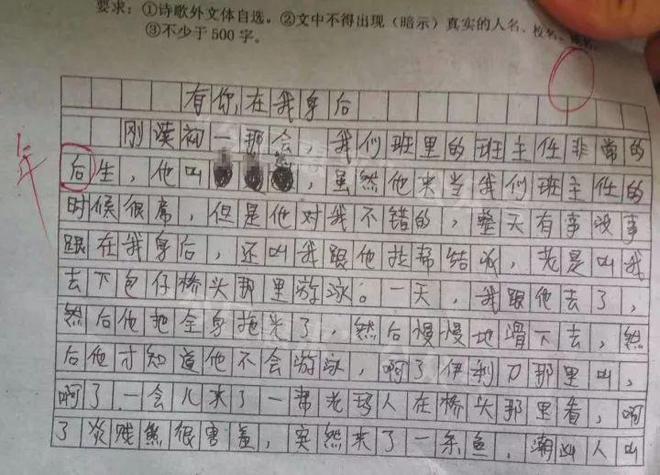 要求：①诗歌外文体自选。②文中不得出现（暗示）真实的人名、校名、
③不少于500字。
有你在我身后
刚读初一那会，我们班里的班主任非常的
年
后生，他叫，虽然他来当我们班主任的
时候很屌，但是他对我不错的，整天有事没事
跟在我身后，还叫我跟他拉帮结派，老是叫我
去下包仔桥头那里游泳。一天，我跟他去了，
然后他把全身拖光了，然后慢慢地滑下去，然
后他才知道他不会游泳，啊了伊利刀那里叫，
啊了一会儿来了一帮老玛人在桥头那里看，啊
了炎贱焦很害羞，突然来了一条鱼，潮汕人叫